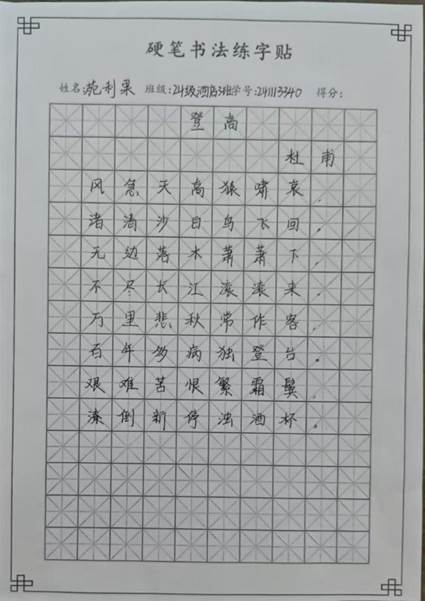 硬笔书法练字贴
姓名:苑利果 班级:24级酒店3班 学号:24113340 得分:
登高
杜甫
风急天高猿啸哀,
渚清沙白鸟飞回。
无边落木萧萧下,
不尽长江滚滚来。
万里悲秋常作客,
百年多病独登台。
艰难苦恨繁霜鬓,
潦倒新停浊酒杯。